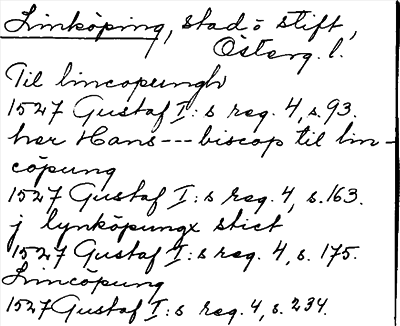 Linköping, stad o stift,
Österg. l.
Til lincopungh
1527 Gustaf I:s reg. 4, s. 93.
her Hans --- biscop til lin-
cöpung
1527 Gustaf I:s reg. 4, s. 163.
j lynköpungx stict
1527 Gustaf I:s reg. 4, s. 175.
Lincöpung
1527 Gustaf I:s reg. 4, s. 234.